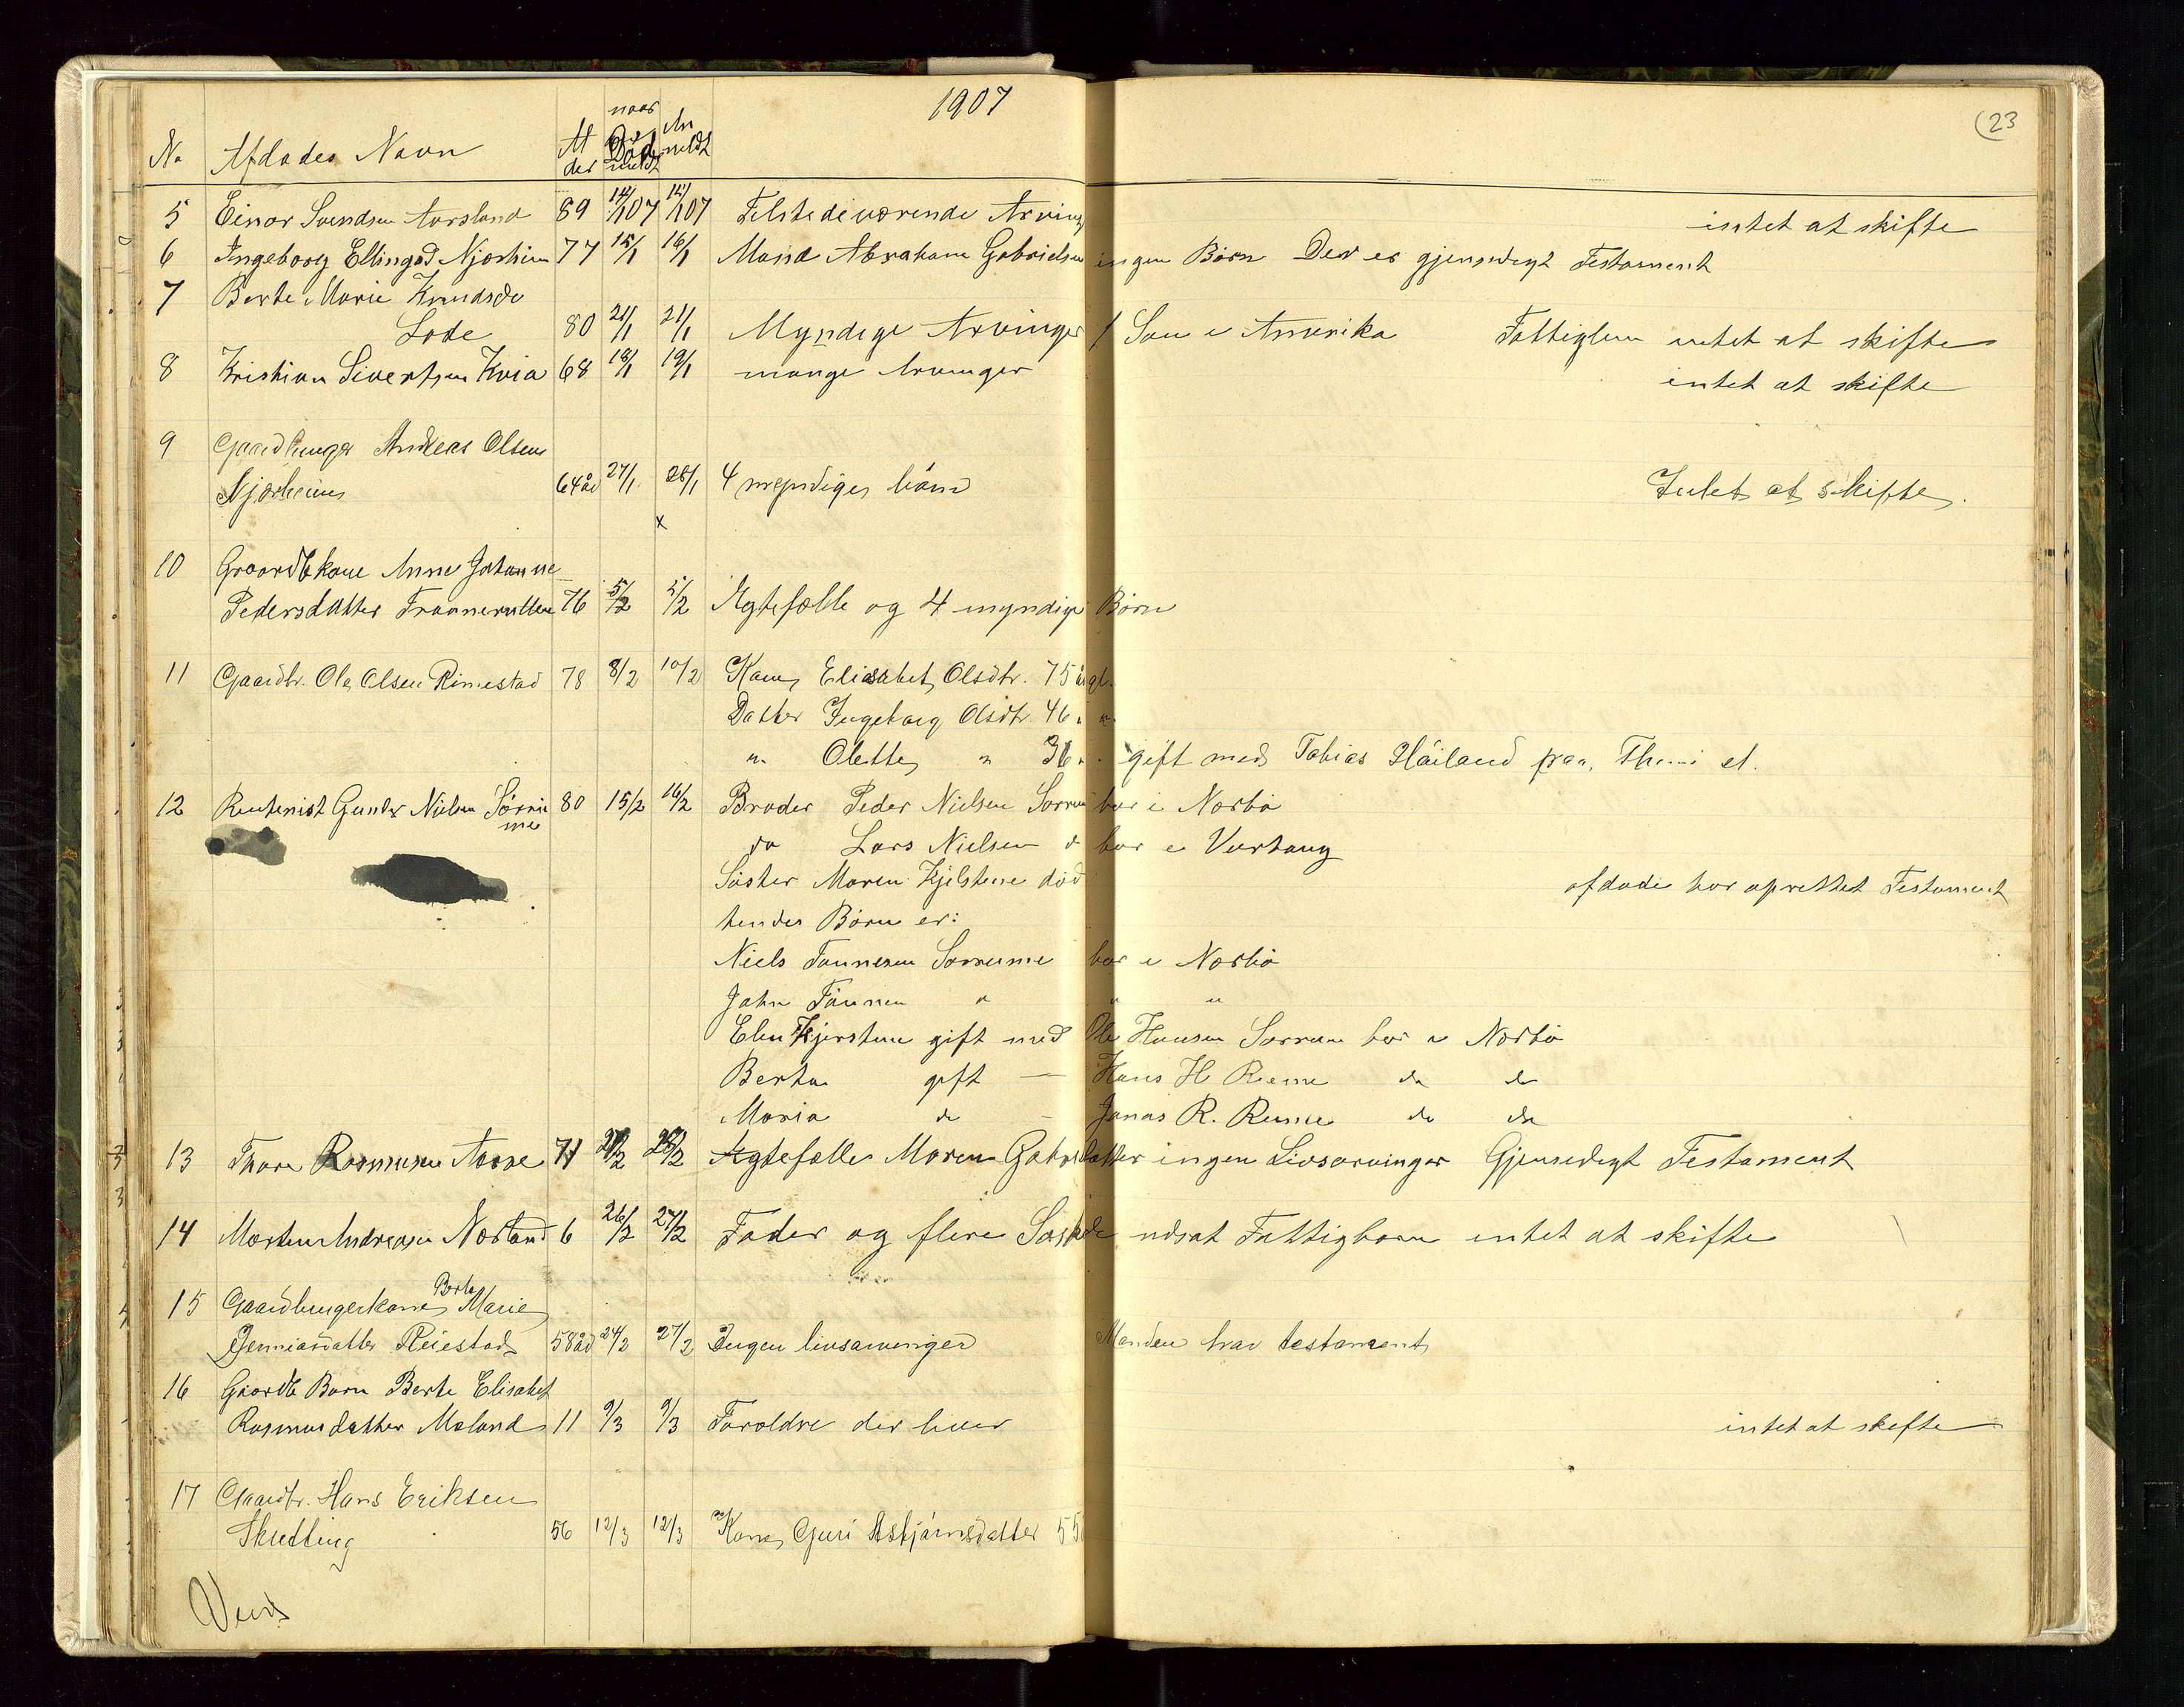 1907
23
No Afdødes Navn Al der naar Død An meldt
5 Einar Svendsen Aarsland 89 14/1 07 15/1 07 Tilstedeværende Arving intet at skifte
6 Ingeborg Ellingsd Njærheim 77 15/1 16/1 Mand Abraham Gabrielsen ingen Børn Der er gjensidigt Testament
7 Berte Marie Knudsdr
Lode 80 21/1 21/1 Myndige Arvinger 1 Søn i Amerika Fattiglem intet at skifte
8 Kristian Sivertsen Kvia 68 18/1 19/1 mange Arvinger intet at skifte
9 Gaardbruger Andreas Olsen
Njærheim 64 år 27/1 28/1 4 myndige børn Intet at skifte.
x
10 Gaardbkone Anne Johanne
Pedersdatter 76 5/2 5/2 Ægtefælle og 4 myndige Børn
11 Gaardbr. Ole Olsen Rimestad 78 8/2 10/2 Kone Elisabet Olsdtr. 75 år gl.
Datter Ingeborg Olsdtr. 46 " "
" Olette " 36 " gift med Tobias Håiland paa
12 Rentenist Gunder Nielsen Sörru 80 15/2 16/2 Broder Peder Nielsen Sørrum bor i Nærbö
me
do Lars Nielsen d bor i Varhaug
Søster Maren Kjelstine död afdøde har oprettet Testament
hendes Børn er:
Niels Tønnesen Sørrume bor i Nærbö
John Tønnesen " " "
Elen Kjerstine gift med Ole Hansen Sørrum bor i Nærbö
Berta gift — Hans H Reime do do
Maria do - Jonas R. Reime do do
13 Thore Rasmusen Aarre 71 27/2 28/2 Ægtefælle Maren Gabrielsdatter ingen Livsarvinger Gjensidigt Testament
14 Morten Andreasen Nærland 6 26/2 27/2 Fader og flere Søskende udsat Fattigbarn intet at skifte
15 Gaardbrugerkone Berte Marie
Reiestad 58 år 24/2 27/2 Ingen livsarvinger Manden har testament
16 Gaardb Barn Berte Elisabet
Rasmusdatter Mæland 11 9/3 9/3 Forældre der lever intet at skifte
17 Gaardbr. Hans Eriksen
Skretting 56 12/3 12/3 Kone Guri Asbjørnsdatter 55
Vend